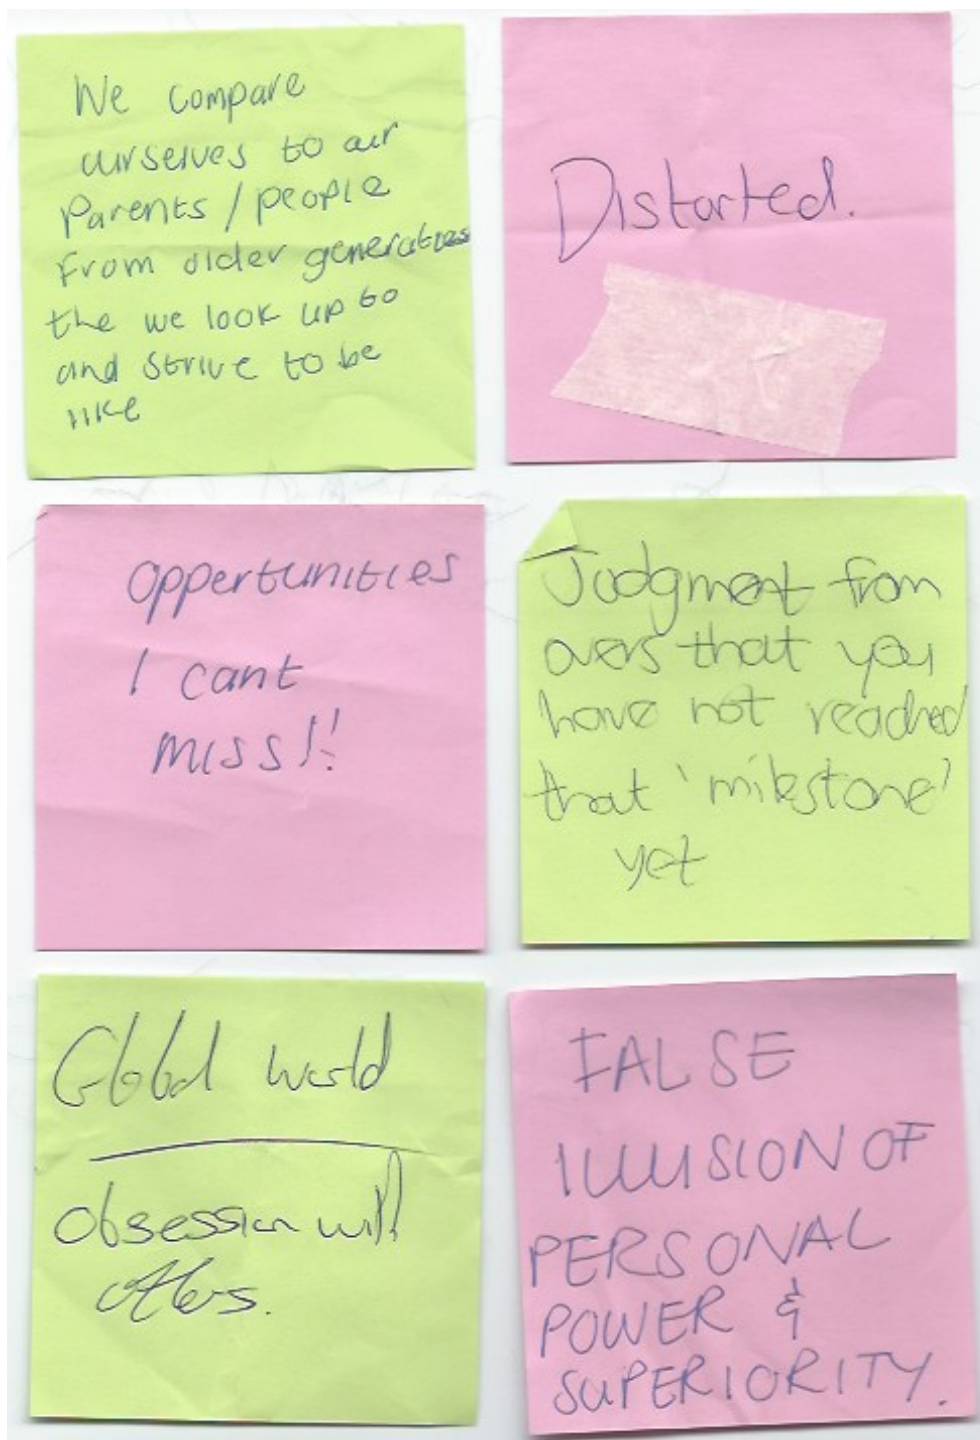 We compare
ourselves to our
Parents / people
From older generations
the we look up to
and strive to be
like
Distorted.
Oppertunities
I cant
miss!!
Judgment from
overs that you
have not reached
that 'milestone'
yet
Global world
Obsession with
others.
FALSE
ILLUSION OF
PERSONAL
POWER &
SUPERIORITY.